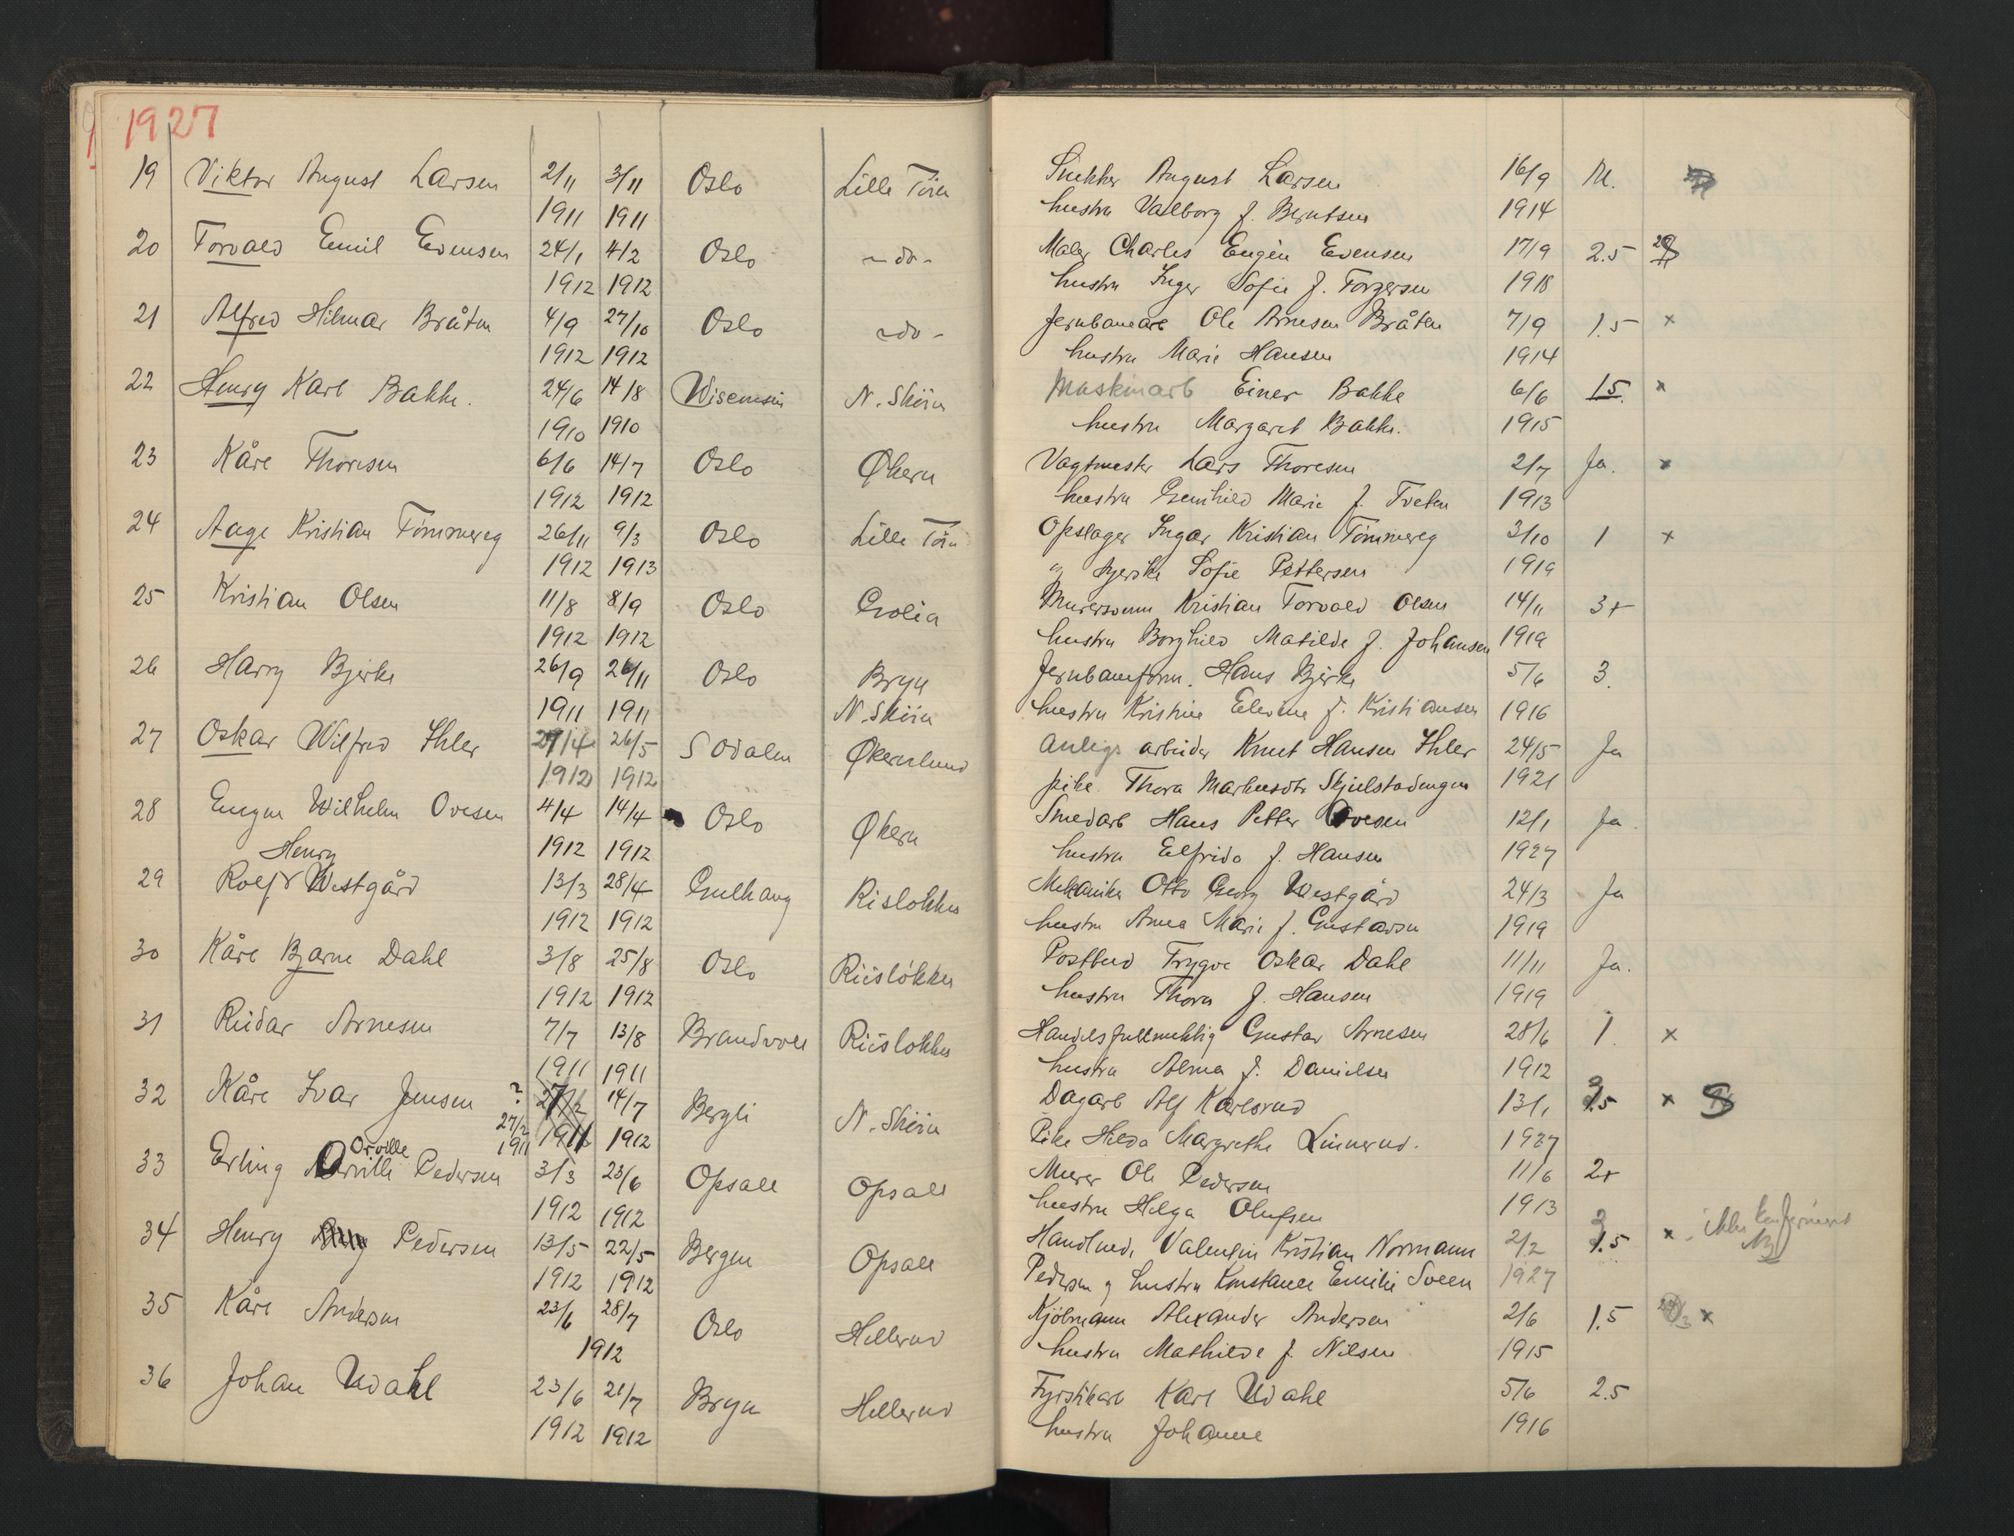 1927
19 Viktor August Larsen 2/11 3/11 Oslo Lille Tøien Snekker August Larsen 16/9 M.
1911 1911 hustru Valborg f. Berntsen 1914
20 Torvald Emil Evensen 24/1 4/2 Oslo -do- Maler Charles Eugén Evensen 17/9 2.5
1912 1912 hustru Inger Sofie f. Torgersen 1918
21 Alfred Hilmar Bråten 4/9 27/10 Oslo -do- Jernbanearb Ole Arnesen Bråten 7/9 1.5 ×
1912 1912 hustru Marie Hansen 1914
22 Henry Karl Bakke. 24/6 14/8 Wisconsin N. Skøien Maskinarb Einer Bakke 6/6 15. ×
1910 1910 hustru Margaret Bakke. 1915
23 Kåre Thoresen 6/6 14/7 Oslo Økern Vagtmester Lars Thoresen 2/7 Ja. ×
1912 1912 hustru Gunhild Marie f. Tveten 1913
24 Aage Kristian Tømmereg 26/11 9/3 Oslo Lille Tøien Opslager Ingar Kristian Tømmereg 3/10 1 ×
1912 1913 og Syerske Sofie Pettersen 1919
25 Kristian Olsen 11/8 8/9 Oslo Golia Murersvenn Kristian Torvald Olsen 14/11 3+
1912 1912 hustru Borghild Matilde f. Johansen 1919
26 Harry Bjerke 26/9 26/11 Oslo Bryn Jernbaneform. Hans Bjerke 5/6 3.
1911 1911 N. Skøien hustru Kristine Elevine f. Kristiansen 1916
27 Oskar Wilfred Ihler 29/4 26/5 S Odalen Økernlund Anlegs arbeider Knut Hansen Ihler 24/5 Ja
1912 1912 pike Thora Markusdtr Skjelstadengen 1921
28 Eugen Wilhelm Ovesen 4/4 14/4 Oslo Økern Smedarb Hans Petter Ovesen 12/1 Ja.
1912 1912 hustru Elfrida f. Hansen 1927
Henry
29 Rolf Westgård 13/3 28/4 Gulhaug Risløkken Mekaniker Otto Georg Westgård 24/3 Ja
1912 1912 hustru Anna Marie f. Gustavsen 1919
30 Kåre Bjarne Dahl 3/8 25/8 Oslo Riisløkken Postbud Trygve Oskar Dahl 11/11 Ja.
1912 1912 hustru Thora f. Hansen 1919
31 Reidar Arnesen 7/7 13/8 Brandvoll Riisløkken Handelsfullmektig Gustav Arnesen 28/6 1. ×
1911 1911 hustru Alma f. Danielsen 1912
32 Kåre Ivar Jensen ? 27/2 14/7 Bergli N. Skøien Dagarb Alf Karlsrud 13/1 3.5 × S
27/2 1911 1911 1912 Pike Hilda Margrethe Linnerud. 1927
Orville
33 Erling Orville Pedersen 3/3 23/6 Opsall Opsall Murer Ole Pedersen 11/6 2+
1912 1912 hustru Helga Olufsen 1913
34 Henry Pedersen 13/5 22/5 Bergen Opsall Handlende Valentin Kristian Normann 2/2 1.5 × ikke konfirmert
1912 1912 Pedersen og hustru Konstanse Emilie Sveen 1927
35 Kåre Andersen 23/6 28/7 Oslo Hellerud Kjölmann Alexander Andersen 2/6 1.5 ×
1912 hustru Mathilde f. Nilsen 1915
36 Johan Udahl 23/6 21/7 Bryn Hellerud Fyrstikarb Karl Udahl 5/6 2.5
1912 1912 hustru Johanne 1916